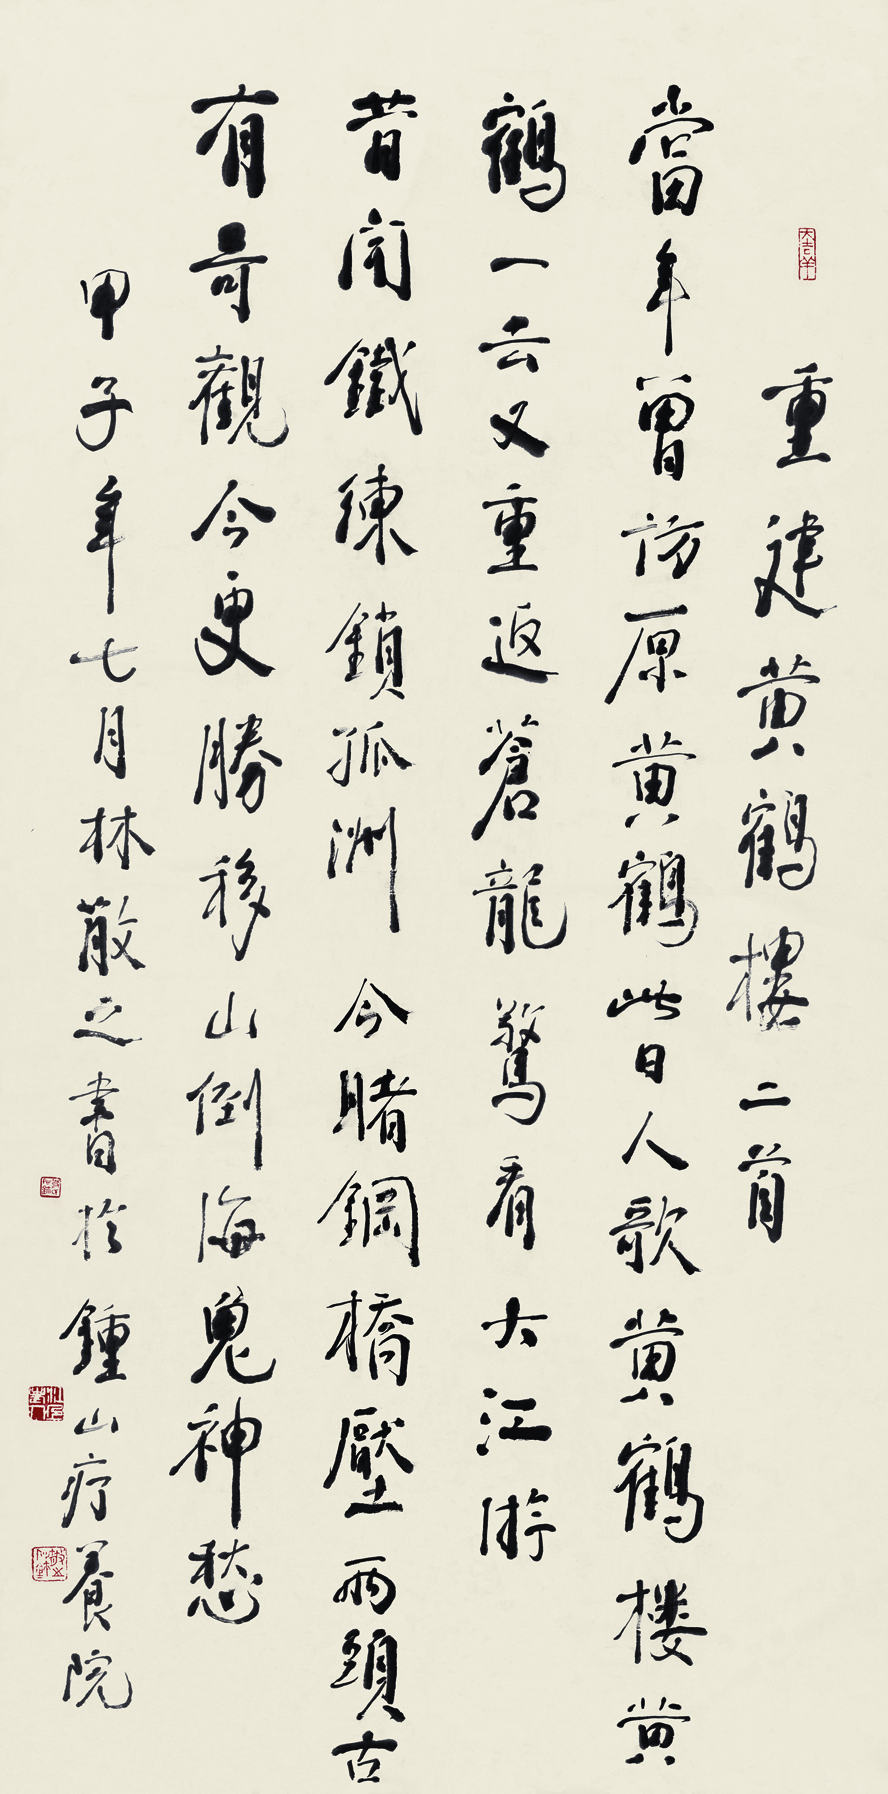 重建黄鹤樓二首
當年曽訪原黄鶴此日人歌黄鶴楼黄
鶴一云又重返蒼龍驚看大江游
昔闻鐵練鎖孤洲今睹鋼橋壓兩頭古
有奇觀今更勝移山倒海鬼神愁
甲子年七月林散之書於鍾山疗養院
大吉羊